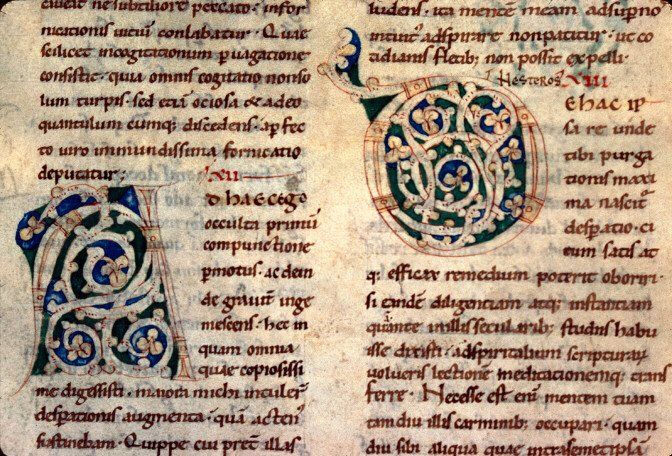 caueat ne subtiliore peccato infor
nicationis uitiū conlabatur. Quae
scilicet incogitationum puagatione
consistit. quia omnis cogitatio nonso
lum turpis. sed etiā ociosa & adeo
quantulum cumq; discedens. apfec
to uiro inmundissima fornicatio
deputatur; XII
A
D haec ego
occulta primū
compunctione
pmotus. ac dein
de grauit inge
mescens. hec in
quam omnia
quae copiosissi
me digessisti. maiora michi intuler
desperationis augmenta. quā acten
sustinebam. Quippe cui pret illas
ludens. ita mentem meam adsupno
intuit adspirare nonpatitur. ut co
tidianis fletib; non possit expelli.
HESTEROS XIII
D
E HAC IP
sa re unde
tibi purga
tionis maxi
ma nascit
despatio. ci
tum satis at
q; efficax remedium poterit oboriri
si eindē diligentiam atq; instantiam
quante inillis secularib; studiis habu
isse dixisti. adspiritalium scripturar
uolueris lectione meditationemq; trans
ferre. Necesse est enī mentem tuam
tam diu illis carminib; occupari. quam
diu sibi aliqua quae intrasemetipsā